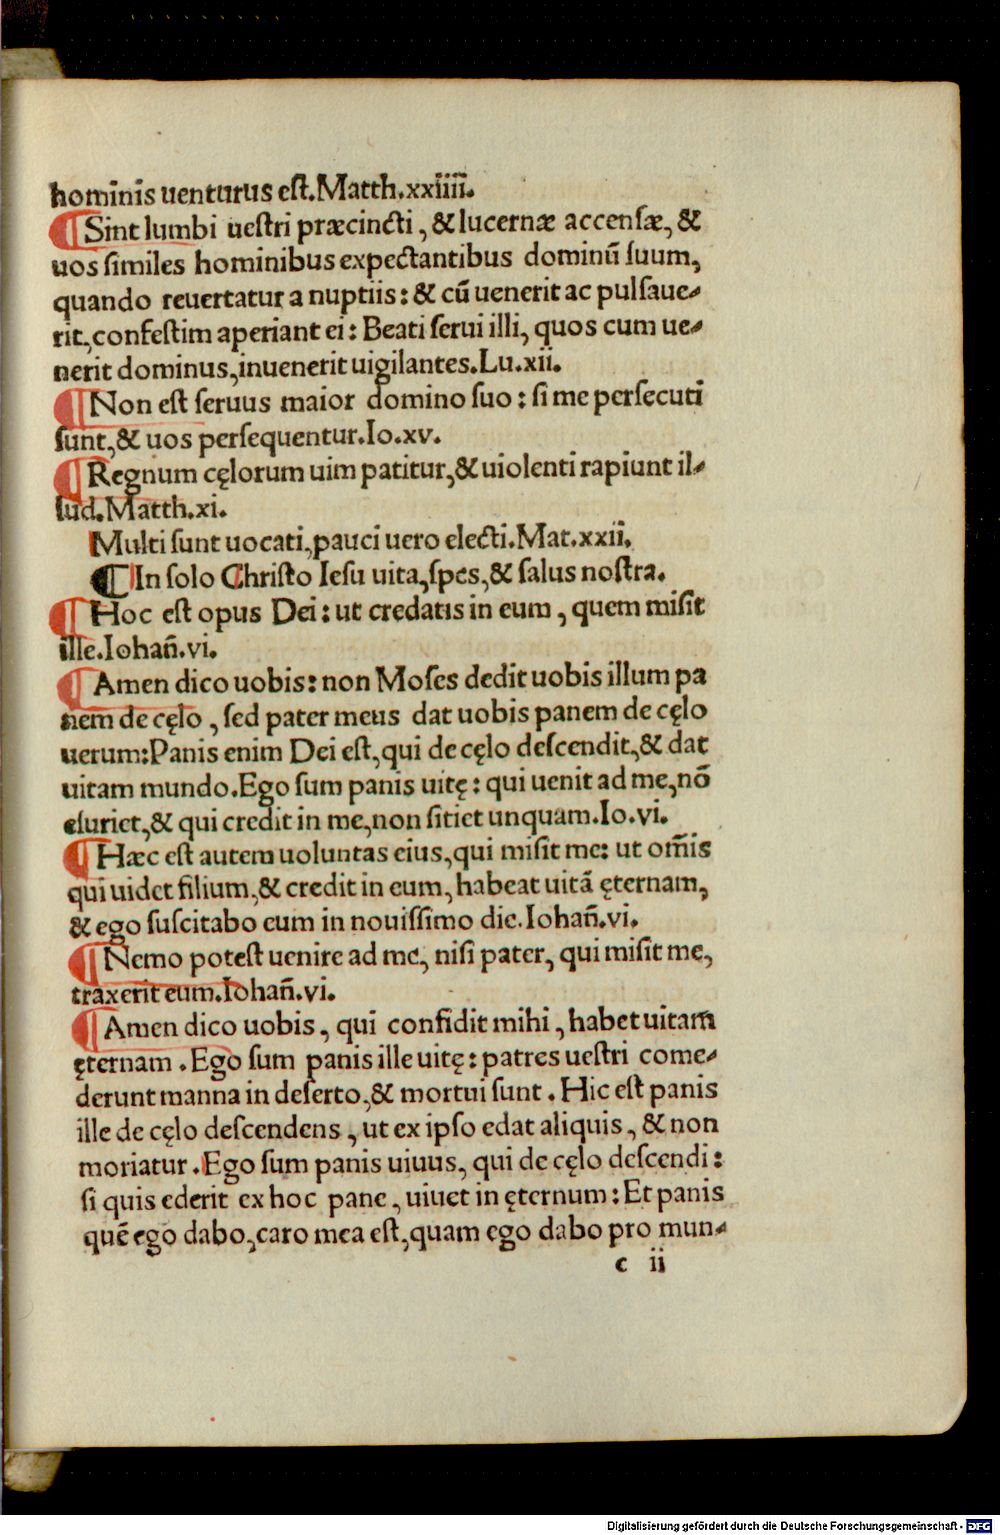 hominis uenturus est.Matth.xxiiii.
¶Sint lumbi uestri præcincti, & lucernæ accensæ, &
uos similes hominibus expectantibus dominū suum,
quando reuertatur a nuptiis: & cū uenerit ac pulsaue⸗
rit,confestim aperiant ei: Beati serui illi, quos cum ue⸗
nerit dominus,inuenerit uigilantes.Lu.xii.
¶Non est seruus maior domino suo: si me persecuti
sunt,& uos persequentur.Io.xv.
¶Regnum cęlorum uim patitur,& uiolenti rapiunt il⸗
lud.Matth.xi.
Multi sunt uocati,pauci uero electi.Mat.xxii.
¶In solo Christo Iesu uita,spes,& salus nostra.
¶Hoc est opus Dei: ut credatis in eum, quem misit
ille.Iohañ.vi.
¶Amen dico uobis: non Moses dedit uobis illum pa
nem de cęlo, sed pater meus dat uobis panem de cęlo
uerum:Panis enim Dei est,qui de cęlo descendit,& dat
uitam mundo.Ego sum panis uitę: qui uenit ad me,nō
esuriet,& qui credit in me,non sitiet unquam.Io.vi.
¶Hæc est autem uoluntas eius,qui misit me: ut om̄is
qui uidet filium,& credit in eum,habeat uitā ęternam,
& ego suscitabo eum in nouissimo die.Iohañ.vi.
¶Nemo potest uenire ad me, nisi pater, qui misit me,
traxerit eum.Iohañ.vi.
¶Amen dico uobis, qui confidit mihi, habet uitam
ęternam.Ego sum panis ille uitę: patres uestri come⸗
derunt manna in deserto,& mortui sunt. Hic est panis
ille de cęlo descendens, ut ex ipso edat aliquis, & non
moriatur.Ego sum panis uiuus, qui de cęlo descendi:
si quis ederit ex hoc pane, uiuet in ęternum: Et panis
quē ego dabo,caro mea est,quam ego dabo pro mun⸗
c ii
Digitalisierung gefördert durch die Deutsche Forschungsgemeinschaft - DFG